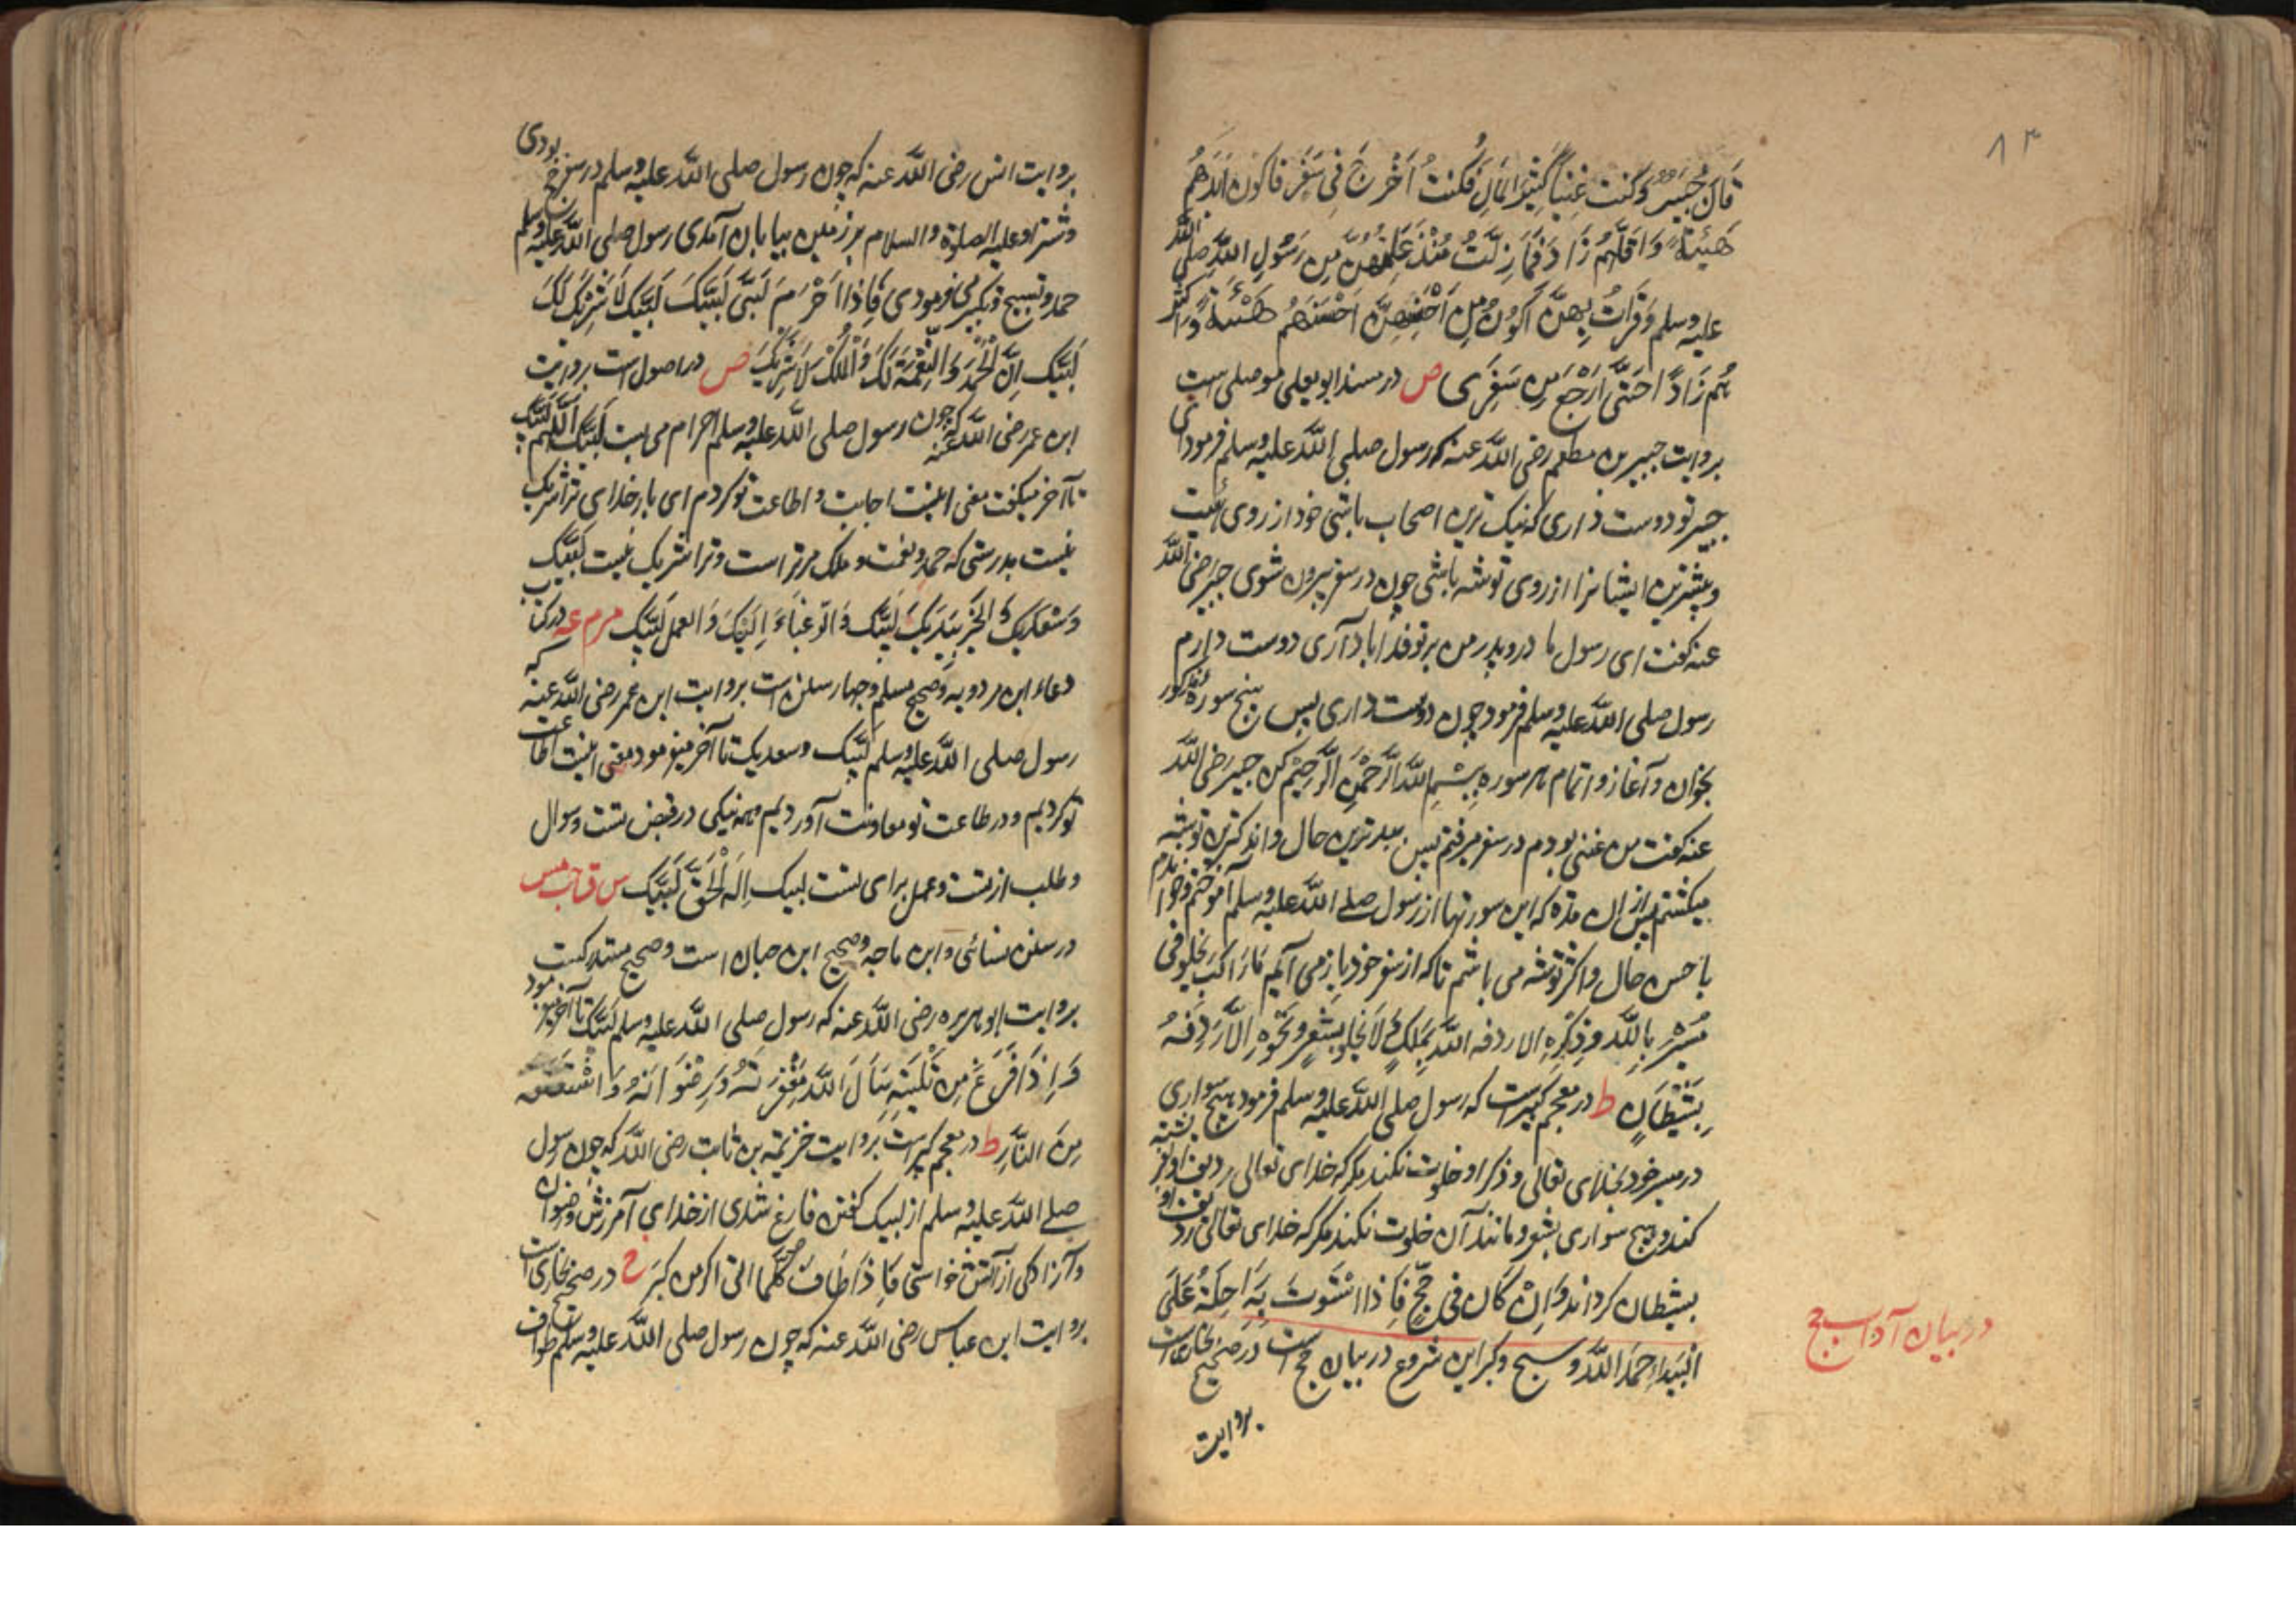 ۸۳
قَالَ جُبَیْرٌ وَکُنْت غَنِیاً کَثِیْرَ المَالِ فَکُنْتُ اَخْرُجَ فِی سَفَرٍ فَاکُونُ اَبَذَّهُمْ
هَیْئَةً وَاَقَلَّهُمْ زَادً فَمَا زِلْتُ مُنْذُ عَلِمْتُهُنَّ مِن رَسُولِ اللّٰهِ صَلَّی اللّٰه
علیه وسلم وَقَرَاْتُ بِهِنَّ اَکُوْنُ مِنْ اَحْسَنِهِمْ هَیْئَةً وَاَکْثَرِ
هِمْ زَادً احَتَّی اَرْجَعَ مِنْ سَفَرِی ص در مسند ابو یعلی موصلی ست
بروایت جبیر بن مطعم رضی اللّٰه عنه که رسول صلی اللّٰه علیه وسلم فرمود ای
جبیر تو دوست داری که نیک ترین اصحاب باشی خود از روی هیئت
و بیشترین ایشانرا از روی توشه باشی چون در سفر بیرون شوی جبیر رضی اللّٰه
عنه گفت ای رسول مادر و پدر من بر تو فدا باد آری دوست دارم
رسول صلی اللّٰه علیه وسلم فرمود چون دوست داری پس پنج سوره مذکور
بخوان و آغاز و اتمام هر سوره بِبِسْمِ اللّٰهِ الرَّحْمٰنِ الرَّحِیْم کن جبیر رضی اللّٰه
عنه گفت من غنی بودم در سفر میرفتم پس ببدترین حال و اندکترین توشه
میگشتم پس ازان مدة که این سورتها از رسول صلے اللّٰه علیه وسلم آموختم و خواندم
با حسن حال و اکثر توشه می باشم تا که از سفر خود باز می آیم مَا رَاکِبٌ یَخْلُو فِی
مَسِیْرِهِ بِاللّٰه وَذِکْرِهِ الا ردفه اللّٰه بِمَلَکٍ وَلَا یَخْلُو بِشَعْرٍ وَنَحْوِهِ اِلَّا رَدِفَهُ
بِشَیْطَانٍ ط در معجم کبیر ست که رسول صلی اللّٰه علیه وسلم فرمود هیچ سواری
در مسیر خود بخدای تعالی و ذکر او خلوت نکند مگر که خدای تعالی ردیف او فرشته
کند و هیچ سواری بشعر و مانند آن خلوت نکند مگر که خدای تعالی ردیف او
بشیطان گرداند وَاِنْ کَانَ فِی حَجٍّ فَاِذَا اسْتَوَتْ بِهِ رَاحِلَتُهُ عَلَی
البَیْدَاءِ حَمَدَ اللّٰهَ وسبح وکبر این شروع در بیان حج است در صحیح بخاری است
در بیان آداب حج
بروایت
بروایت انس رضی اللّٰه عنه که چون رسول صلی اللّٰه علیه وسلم در سفر حج بودی
و شتر او علیه الصلوة والسلام بر زمین بیابان آمدی رسول صلی اللّٰه علیه وسلم
حمد و تسبیح و تکبیر می فرمودی فَاِذَا اَحْرَمَ لَبَّی لَبَّیْکَ لَبَّیْکَ لَا شَرِیْکَ لَکَ
لَبَّیْکَ اِنَّ الْحَمْدَ وَالنِّعْمَةَ لَکَ وَالْمُلْکَ لَا شَرِیْکَ لَکَ ص در اصول است بروایت
ابن عمر رضی اللّٰه عنه که چون رسول صلی اللّٰه علیه وسلم احرام می بست لَبَّیْکَ اللّٰهُمَّ لَبَّیْکَ
تا آخر میگفت معنی اینست اجابت و اطاعت تو کردم ای بار خدای ترا شریک
نیست بدرستی که حمد و نعمت و ملک مر تراست و ترا شریک نیست لَبَّیْکَ
وَسَعْدَیْکَ وَالخَیْرُ بِیَدَیْکَ لَبَّیْکَ وَالرَّغْبَاءُ اِلَیْکَ وَالعَمَلُ لَبَّیْکَ مر م عه در کتاب
دعاء ابن مردویه و صحیح مسلم و چهار سنن است بروایت ابن عمر رضی اللّٰه عنه که
رسول صلی اللّٰه علیه وسلم لَبَّیک وسعدیک تا آخر میفرمود معنی اینست اطاعت
تو کردیم و در طاعت تو معاونت آوردیم و همه نیکی در قبض تست و سوال
و طلب از تست و عمل برای تست لبیک اِلَهَ الْحَقِّ لَبَّیْکَ س ق حب مس
در سنن نسائی و ابن ماجه و صحیح ابن حبان است و صحیح مستدرکست
بروایت ابو هریره رضی اللّٰه عنه که رسول صلی اللّٰه علیه وسلم لَبَّیْکَ تا آخر میفرمود
فَاِذَا فَرَغَ مِنْ تَلْبِیَتِهِ سَاَلَ اللّٰهَ مَغْفِرَتَهُ وَرِضْوَانَهُ وَاسْتَعْتَقَهُ
مِنَ النَّارِ ط در معجم کبیر ست بروایت خزیمة بن ثابت رضی اللّٰه که چون رسول
صلے اللّٰه علیه وسلم از لبیک گفتن فارغ شدی از خدای آمرزش و رضوان
و آزادگی از آتش خواستی فَاِذَا طَافَ کُلَّمَا اتی الرکن کبَّرَ خ در صحیح بخاری است
بروایت ابن عباس رضی اللّٰه عنه که چون رسول صلی اللّٰه علیه وسلم طواف